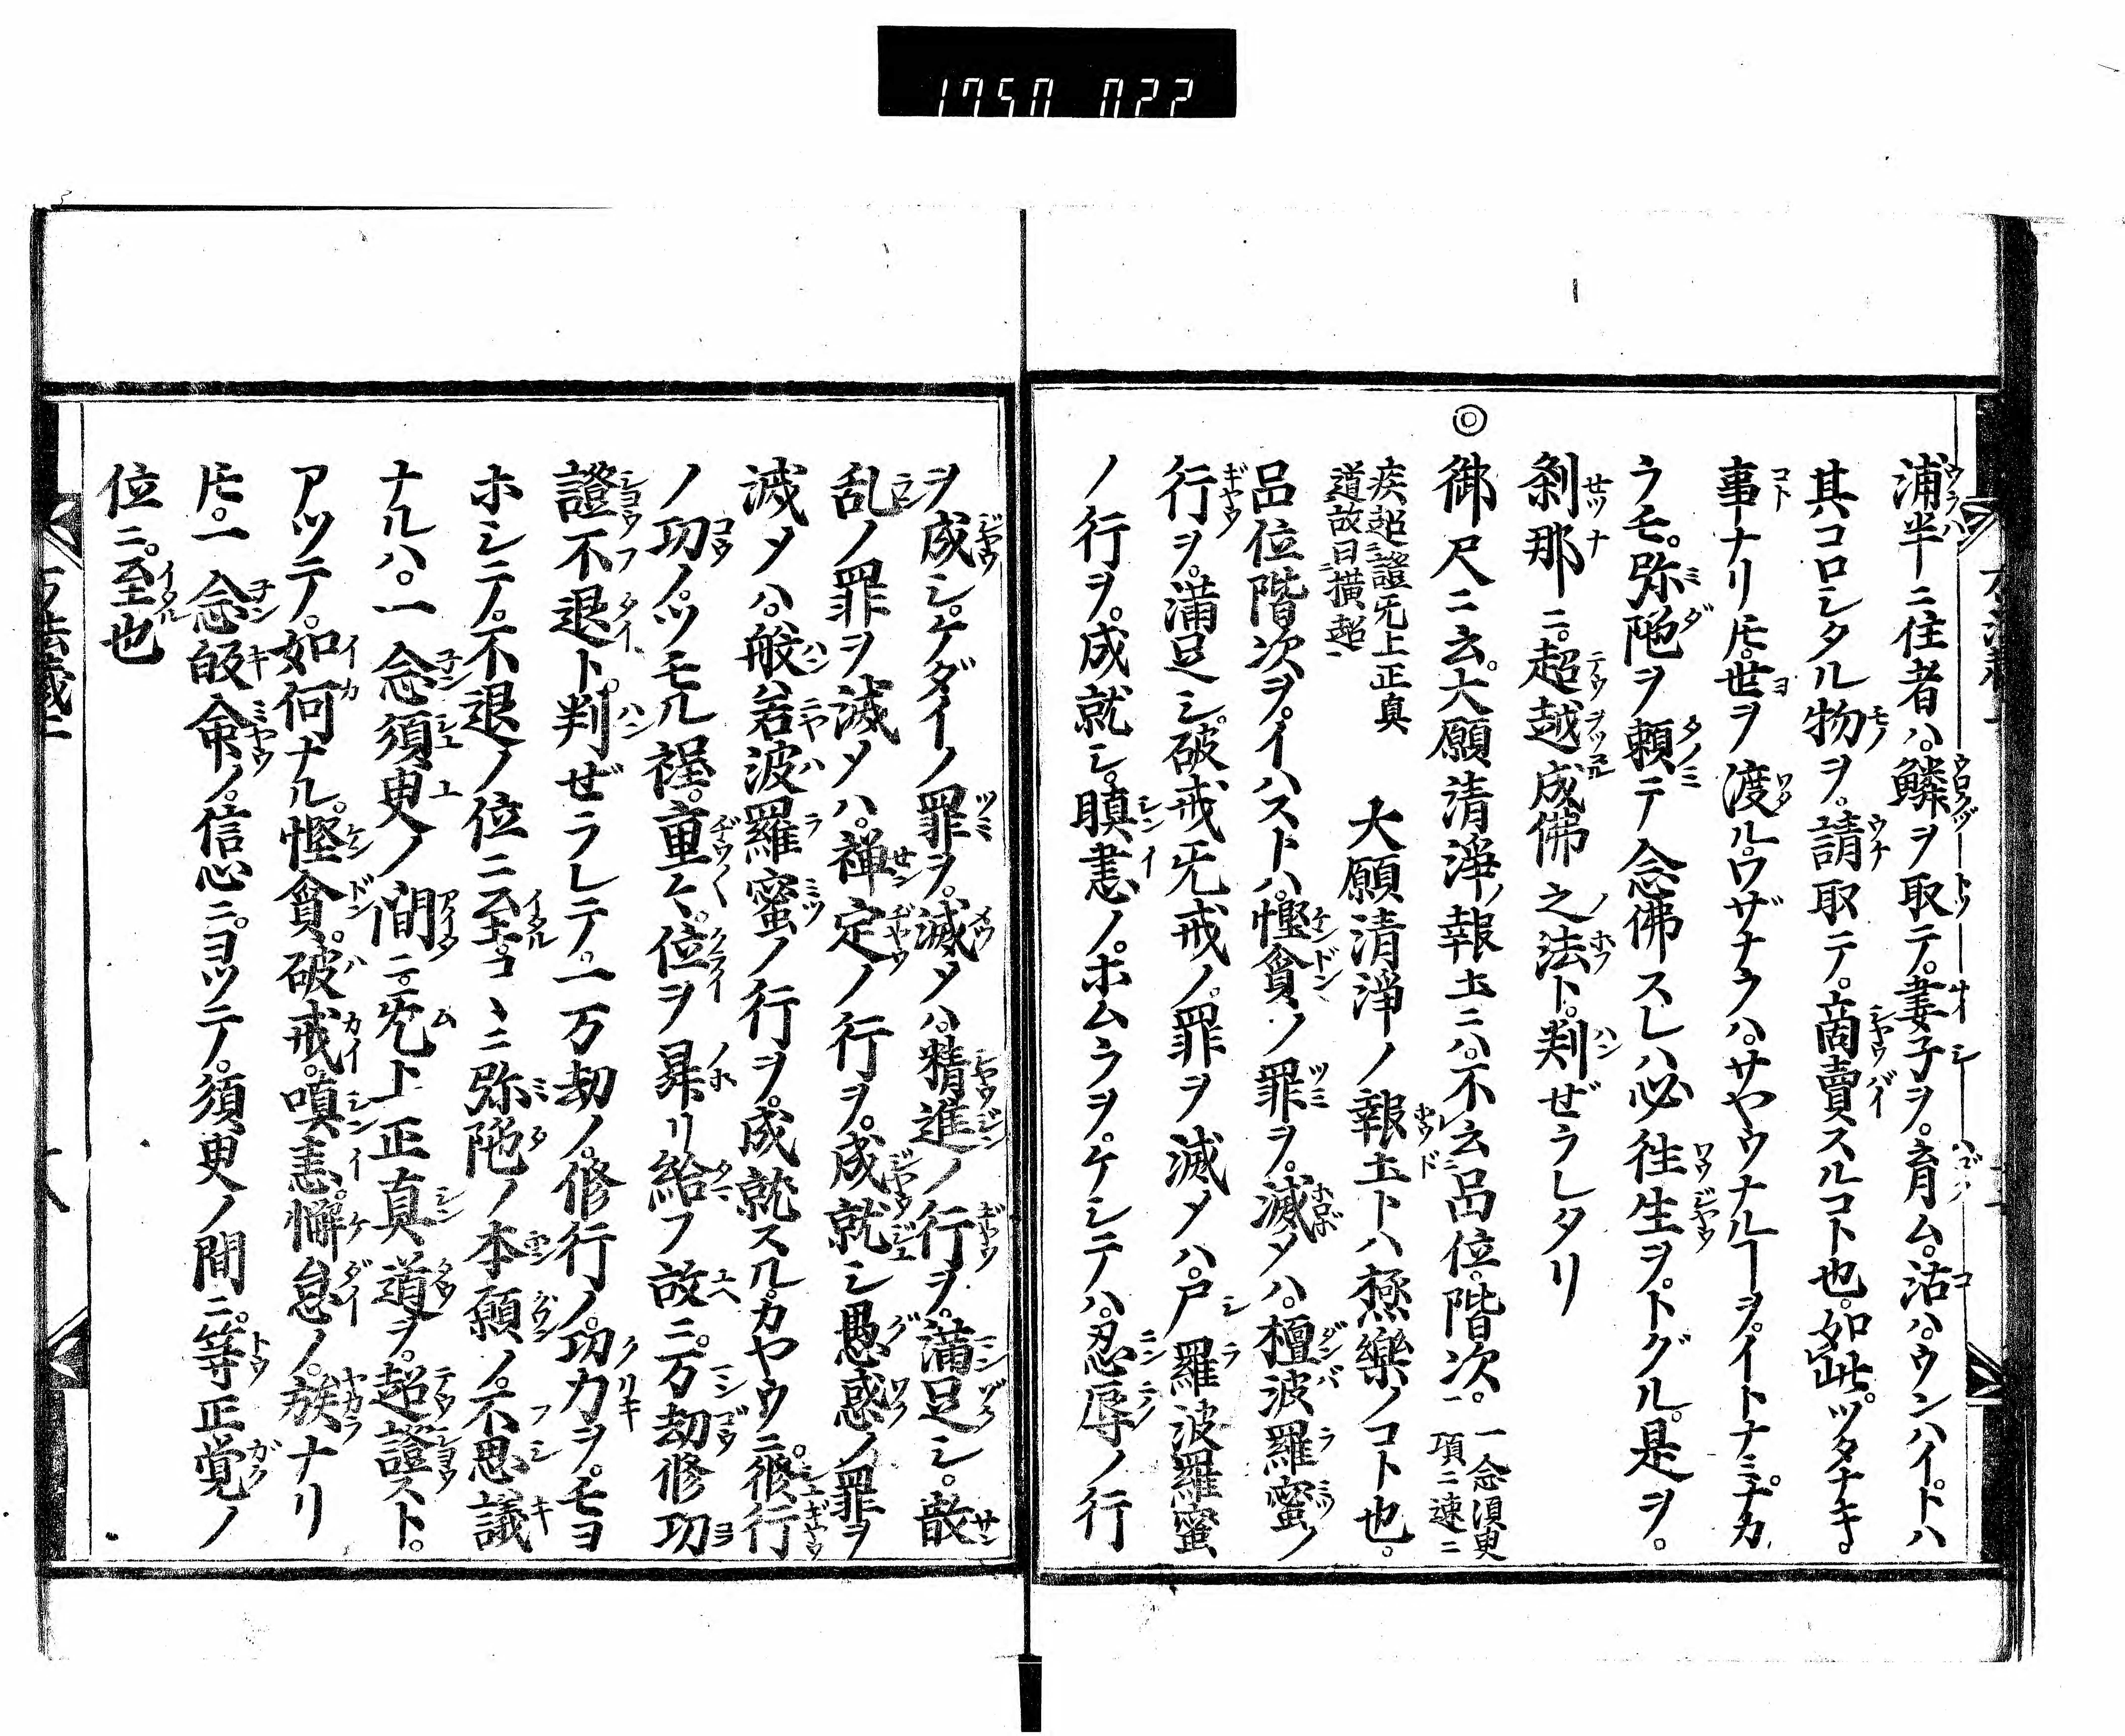 1750 022
浦半ニ住者ハ。鱗ヲ取テ。妻子ヲ。育ム。沽ハ。ウンハイ。トハ
其コロシタル物ヲ。請取テ。商賣スルコト也。如此。ツタナキ
事ナリ𪜈。世ヲ渡ル。ワザナラハ。サヤウナルヿヲ。イトナミ。ナカ
ラモ。弥陁ヲ頼テ念佛スレハ必往生ヲ。トグル。是ヲ。
刹那ニ。超越成佛之法ト。判ゼラレタリ
◎御尺ニ云。大願清淨ノ報土ニハ。不云品位。階次。一念須臾
項ニ速ニ
疾超證无上正真
道故曰横超
大願清淨ノ報土トハ極樂ノコト也。
品位階次ヲ。イハストハ。慳貪ノ罪ヲ。滅メハ。檀波羅蜜ノ
行ヲ。満足シ。破戒无戒ノ。罪ヲ滅メハ。尸羅波羅蜜
ノ行ヲ。成就シ。瞋恚ノ。ホムラヲ。ケシテハ。忍辱ノ行
ヲ成シ。ケダイノ罪ヲ。滅メハ。精進ノ行ヲ。満足シ。散
乱ノ罪ヲ滅メハ。禅定ノ行ヲ。成就シ愚惑ノ罪ヲ
滅メハ。般若波羅蜜ノ行ヲ。成就スル。カヤウニ。修行
ノ功ノ。ツモル程。重々。位ヲ昇リ給フ故ニ。万劫修功
證不退ト。判ゼラレテ。一万劫ノ。修行ノ。功力ヲ。モヨ
ホシテ。不退ノ位ニ至。コヽニ弥陁ノ本願ノ。不思議
ナルハ。一念須臾ノ間ニ。无上正真道ヲ。超證スト。
アツテ。如何ナル。慳貪。破戒。嗔恚。懈怠ノ。族ナリ
𪜈。一念皈命ノ。信心ニ。ヨツテ。須臾ノ間ニ。等正覚ノ
位ニ。至也